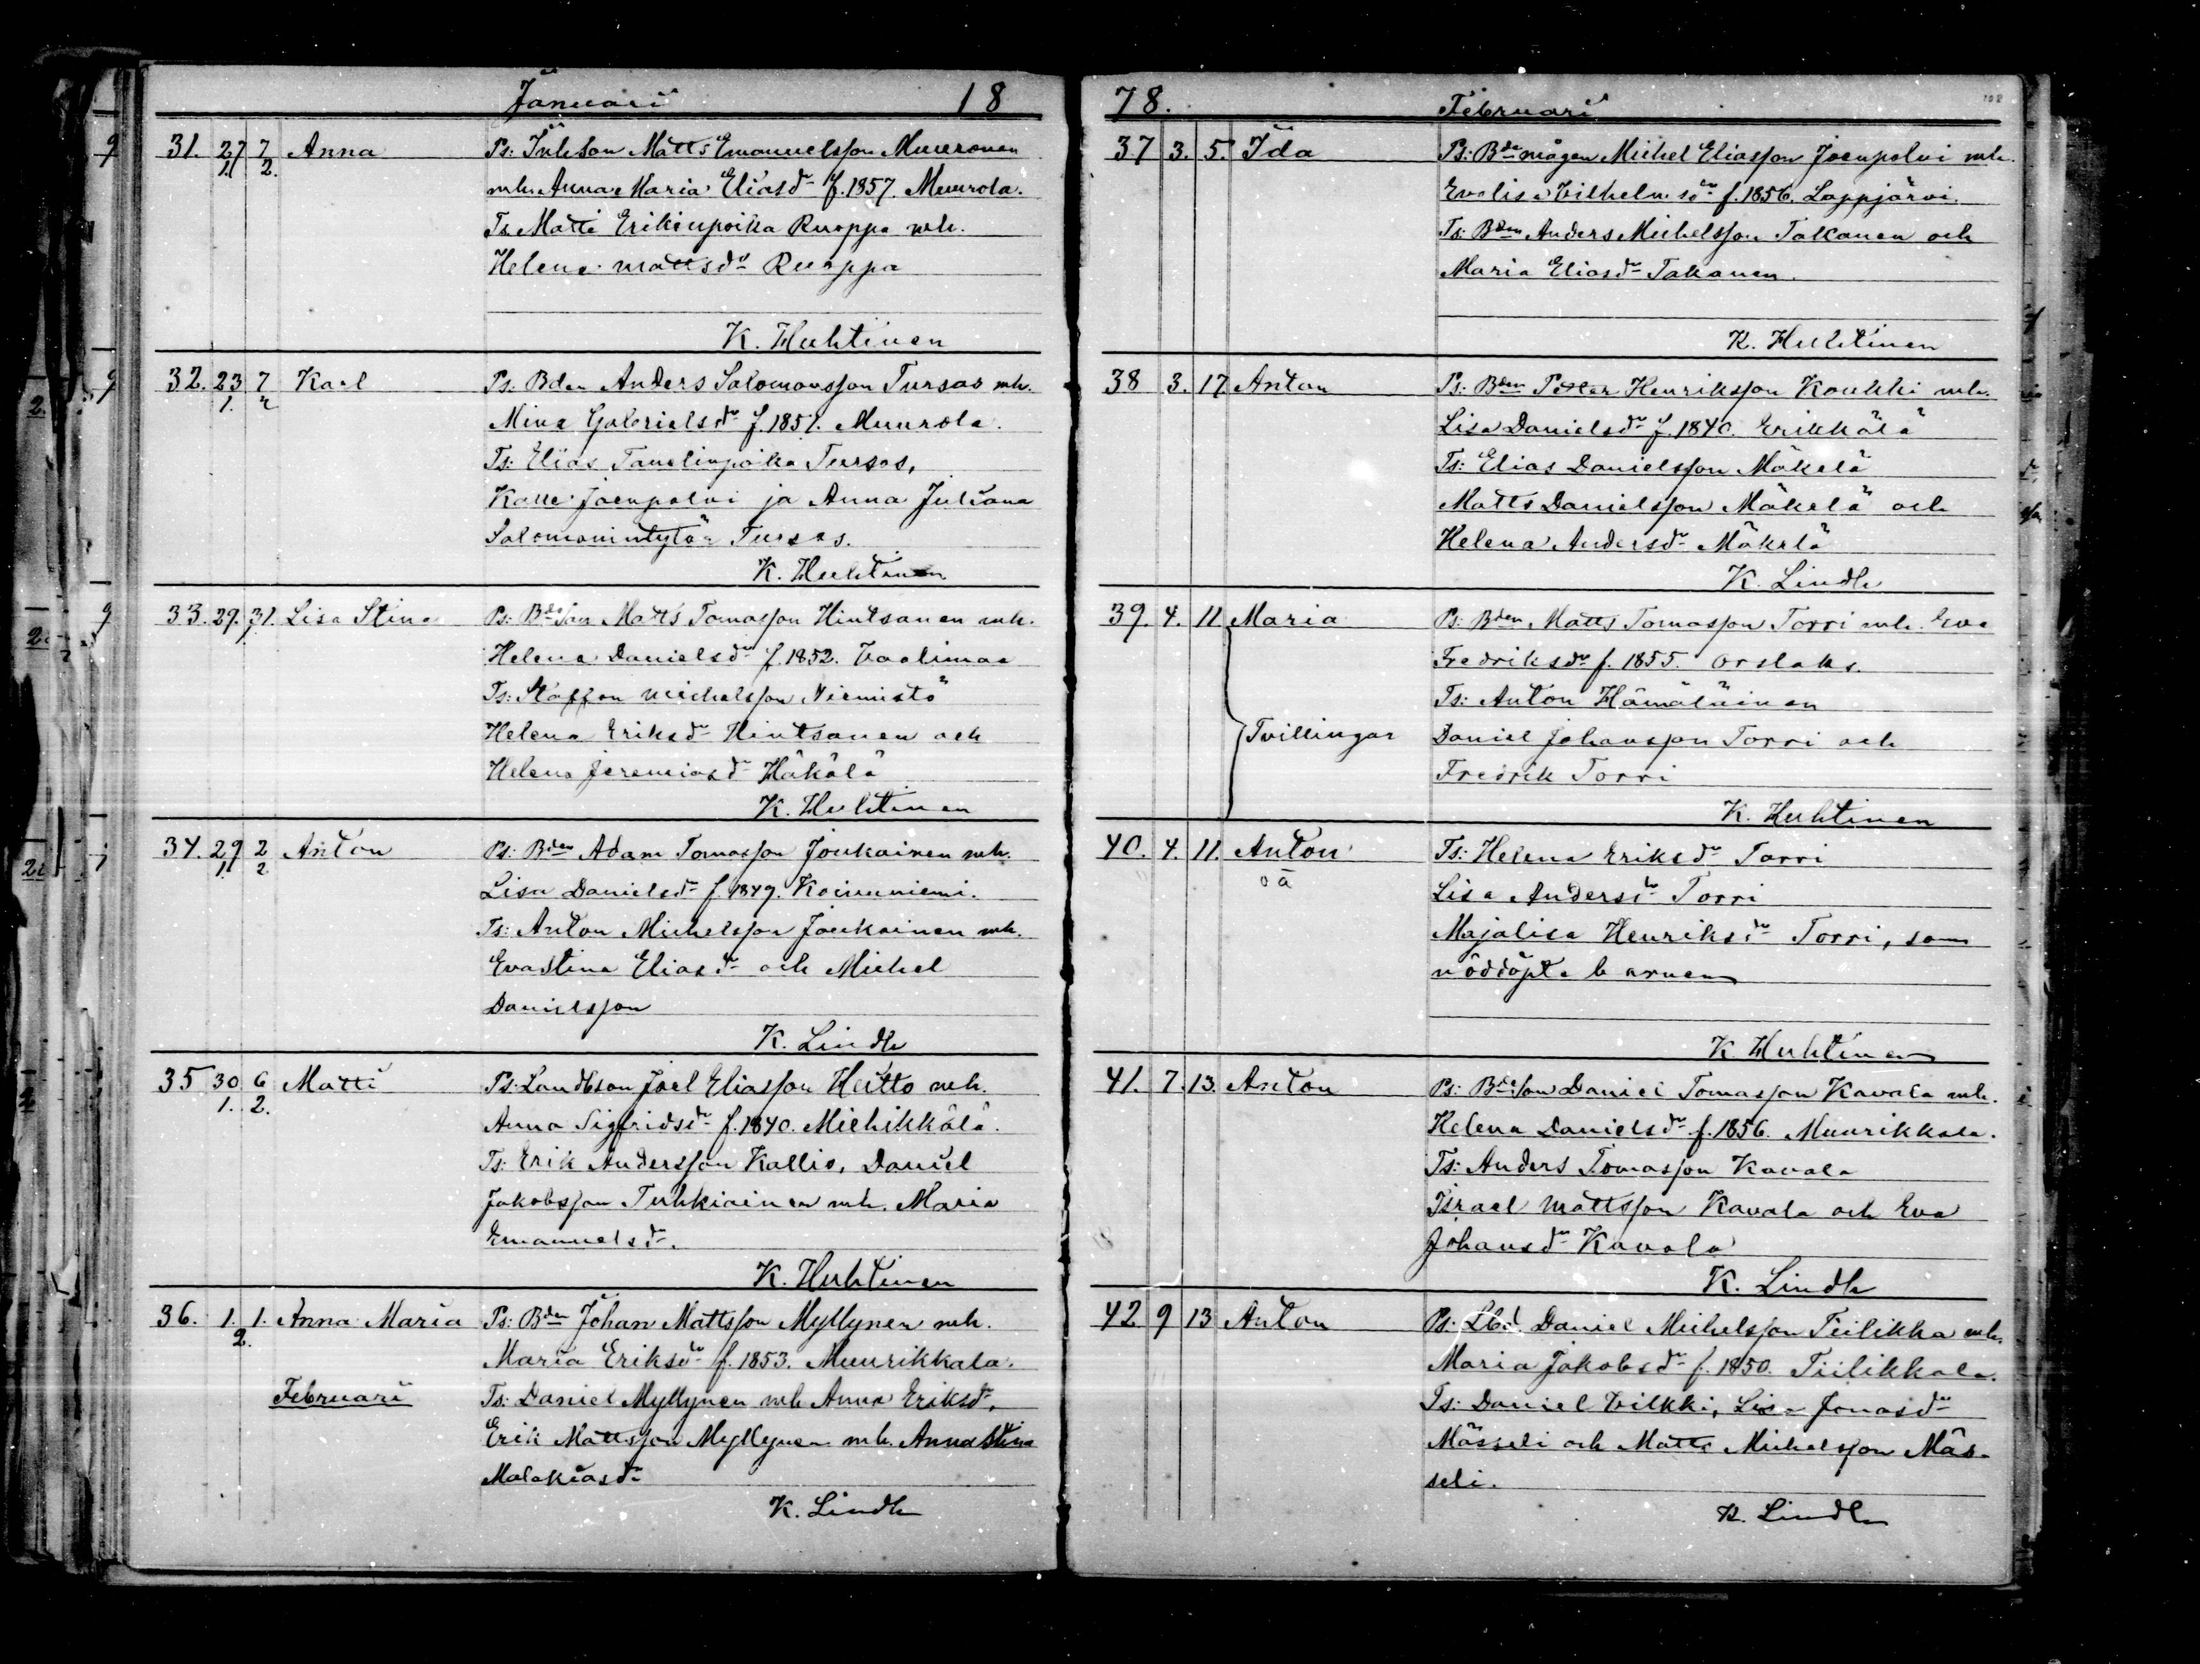 Januari 18
31. 27/1 7/2 Anna Ps: Inh. son Matts Emanuelsson Muuronen
mh. Anna Maria Eliasdr f. 1857. Muurola.
Ts. Matti Erikinpoika Ruoppa mh.
Helena Mattsdr Ruoppa
K. Huhtinen
32. 23/1. 7/2 Karl Ps. Bden Anders Salomonsson Tursas mh.
Mina Gabrielsdr f. 1851. Muurola.
Ts: Elias Tanelinpoika Tursas,
Kalle Joenpolvi ja Anna Juliana
Salomonintytär Tursas.
K. Huhtinen
33. 29. 31. Lisa Stina Ps: Bdeson Matts Tomasson Hintsanen mh.
Helena Danielsdr f. 1852. Vaalimaa
Ts: Staffan Michelsson Niemistö
Helena Eriksdr Hintsanen och
Helena Jeremiasdr Häkälä
K. Huhtinen
34. 29/1 2/2 Anton Ps: Bden Adam Tomasson Joukainen mh.
Lisa Danielsdr f. 1849. Koivuniemi.
Ts: Anton Michelsson Joukainen mh.
Evastina Eliasdr och Michel
Danielsson
K. Lindh
35 30/1. 6/2. Matti Ps: Landbson Joel Eliasson Heitto mh.
Anna Sigfridsdr f. 1840. Miehikkälä.
Ts: Erik Andersson Kallio, Daniel
Jakobsson Tuhkiainen mh. Maria
Emanuelsdr.
K. Huhtinen
36. 1./2. 1. Anna Maria Ps: Bden Johan Mattsson Myllynen mh.
Maria Eriksdr f. 1853. Muurikkala.
Februari Ts: Daniel Myllynen mh Anna Eriksdr,
Erik Mattsson Myllynen mh. Anna Stina
Malakiasdr
K. Lindh
78. Februari
37 3. 5. Ida Ps: Bdemågen Michel Eliasson Joenpolvi mh.
Evalisa Vilhelmsdr f. 1856. Lappjärvi.
Ts: Bden Anders Michelsson Talkanen och
Maria Eliasdr Takanen.
K. Huhtinen
38 3. 17. Anton Ps: Bden Petter Henriksson Koukki mh.
Lisa Danielsdr f. 1840. Erikkälä
Ts: Elias Danielsson Mäkelä
Matts Danielsson Mäkelä och
Helena Andersdr Mäkelä
K. Lindh
39. 4. 11 Maria Ps. Bden Matts Tomasson Torri mh. Eva
Fredriksdr f. 1855. Orslaks.
Ts: Anton Hämäläinen
Tvillingar Daniel Johansson Torri och
Fredrik Torri
K. Huhtinen
40. 4. 11. Anton Ts: Helena Eriksdr Torri
oä Lisa Andersdr Torri
Majalisa Henriksdr Torri, som
nöddöpte barnen
K Huhtinen
41. 7. 13. Anton Ps: Bdeson Daniel Tomasson Kavala mh.
Helena Danielsdr f. 1856. Muurikkala.
Ts: Anders Tomasson Kavala
Israel Mattsson Kavala och Eva
Johansdr Kavala
K. Lindh
42 9 13 Anton Ps: Lbd. Daniel Michelsson Tiilikka mh.
Maria Jakobsdr f. 1850. Tiilikkala.
Ts: Daniel Vilkki, Lisa Jonasdr
Mässeli och Matts Michelsson Mäs-
seli.
K. Lindh